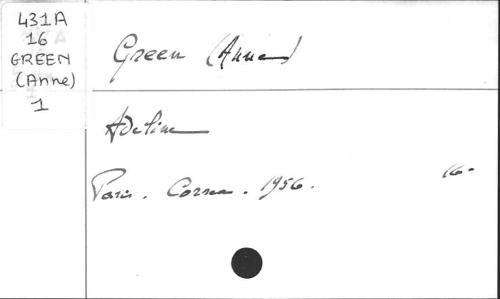 431A
16
GREEN
(Anne)
1
Green (Anne)
Adeline
Paris. Correa. 1956. 16-